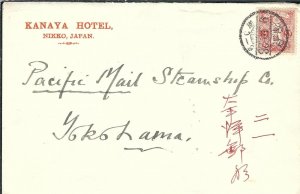 KANAYA HOTEL,
NIKKO, JAPAN.
Pacific Mail Steamship Co.
Yokohama.
二一
太平洋郵船